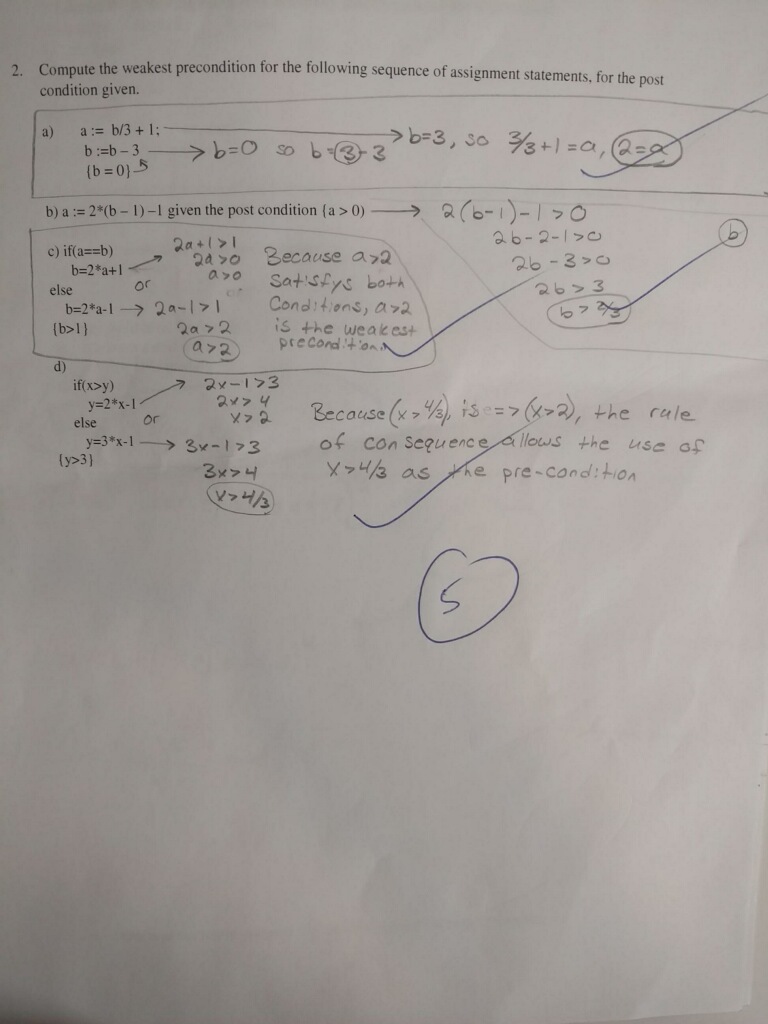 2. Compute the weakest precondition for the following sequence of assignment statements, for the post
condition given.
a) a := b/3 + 1; → b=3, so 3/3+1=a, 2=a
b :=b – 3 → b=0 so b=3-3
{b = 0}
b) a := 2*(b – 1) –1 given the post condition {a > 0} → 2(b-1)-1>0
2b-2-1>0
2b-3>0
2b>3
b>2/3
b
c) if(a==b) 2a+1>1
b=2*a+1 → 2a>0
a>0
else or
b=2*a-1 → 2a-1>1
{b>1} 2a>2
a>2
Because a>2
Satisfys both
Conditions, a>2
is the weakest
precondition.
d)
if(x>y) → 2x-1>3
y=2*x-1 2x>4
else or x>2
y=3*x-1 → 3x-1>3
{y>3} 3x>4
x>4/3
Because (x>4/3), is => (x>2), the rule
of consequence allows the use of
x>4/3 as the pre-condition
5